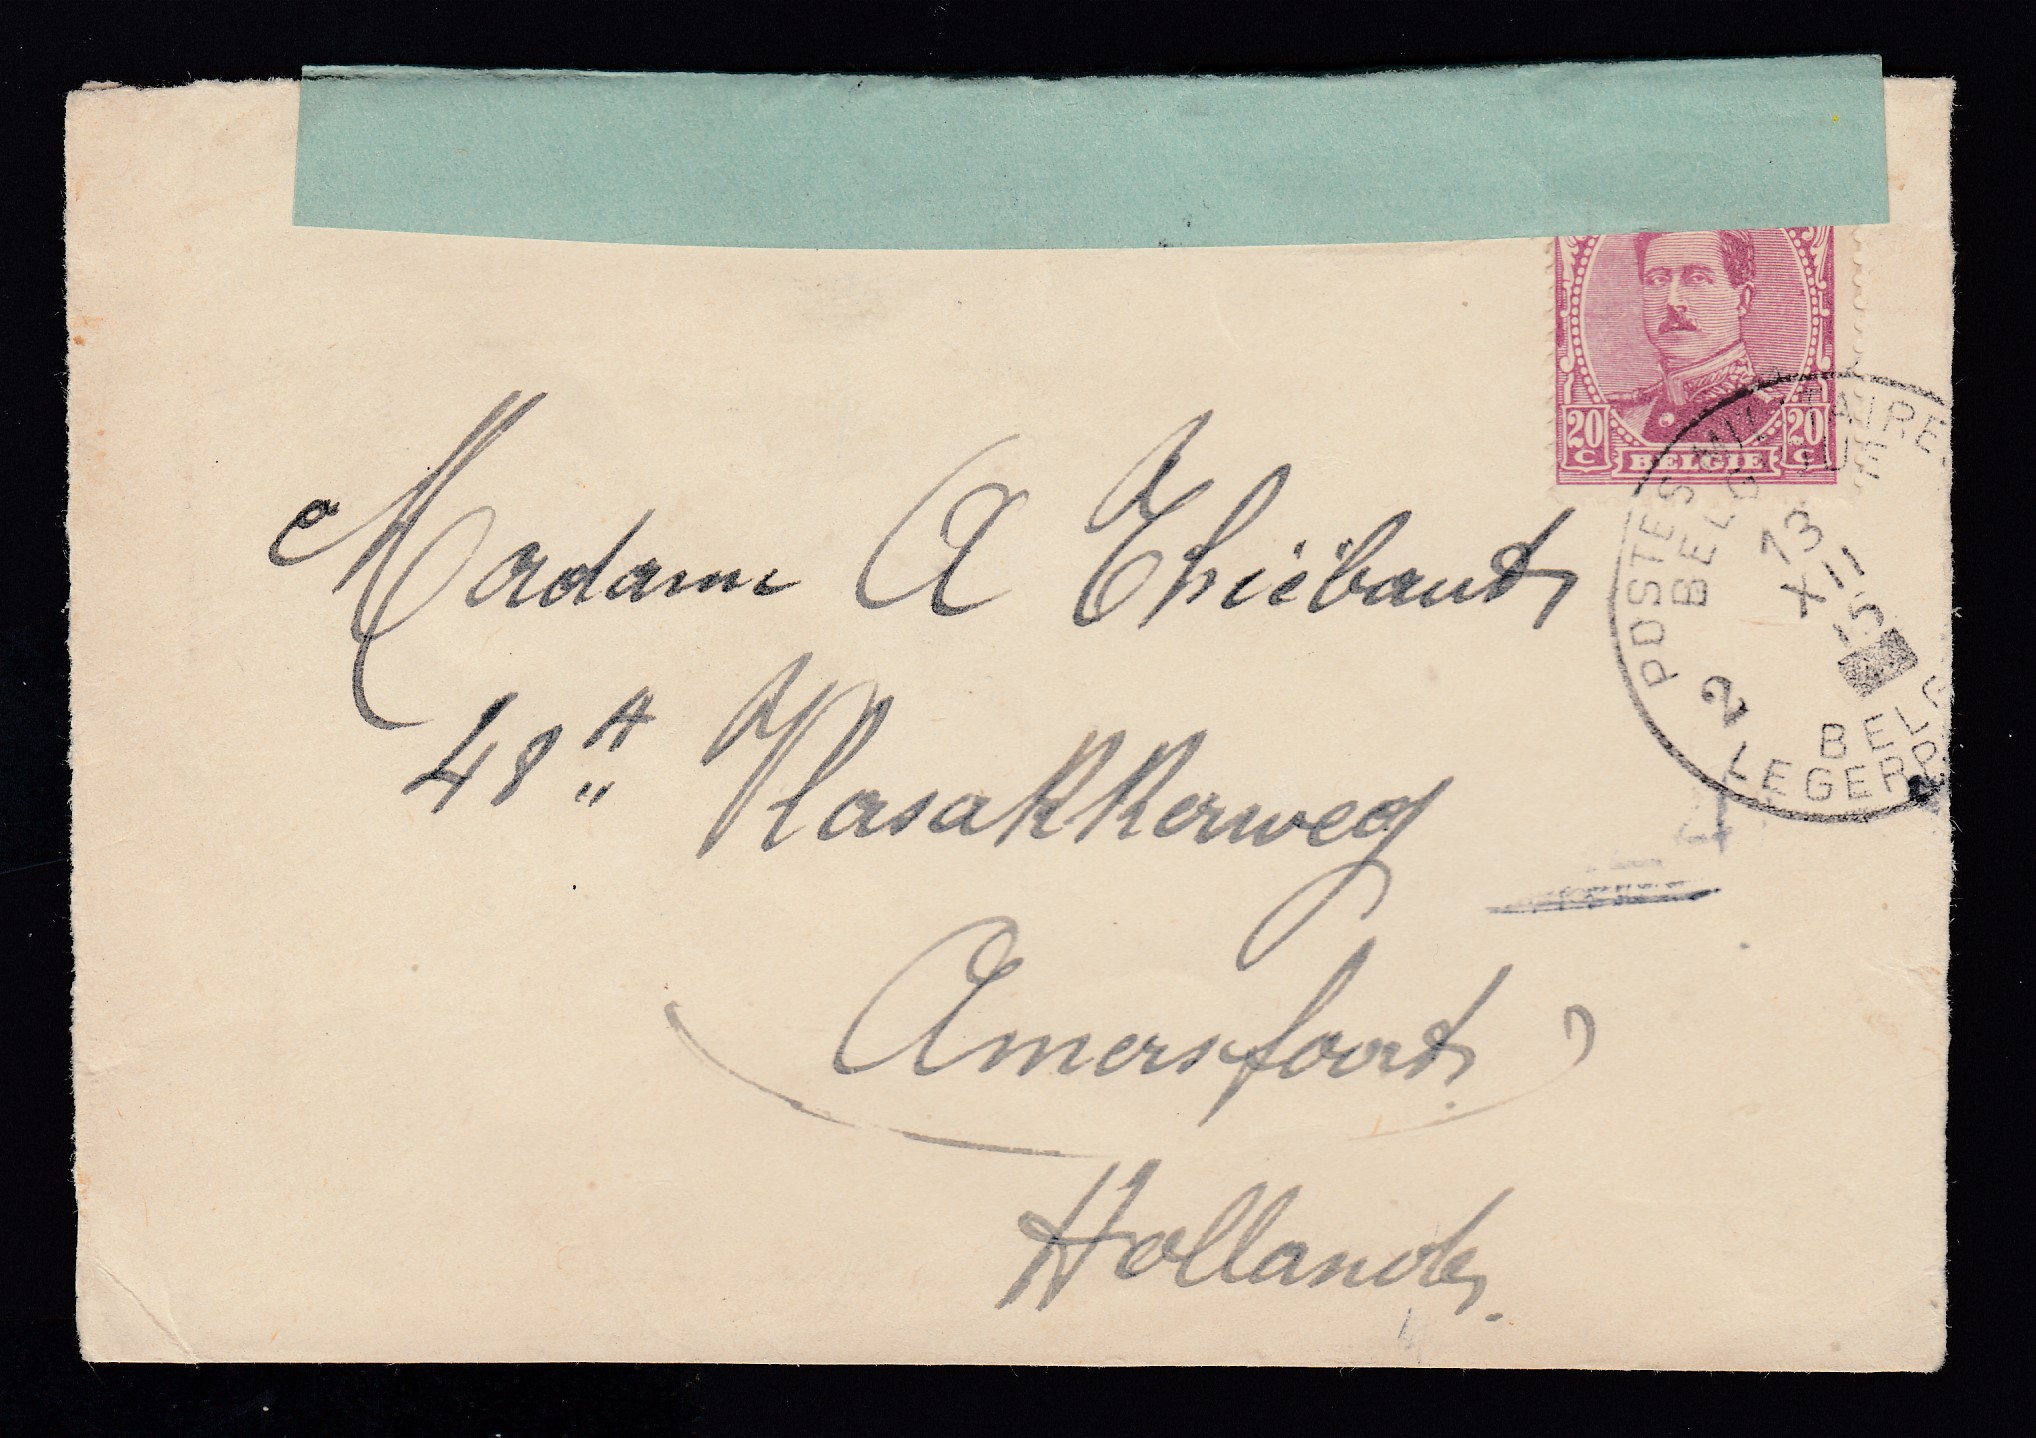 20 C BELGIE 20 C
POSTES MILITAIRES
BELGIQUE
13
XII
15
2
BELG
LEGERP
Madame A Thiébaut
48 A Vlasakkerweg
Amersfoort
Hollande.